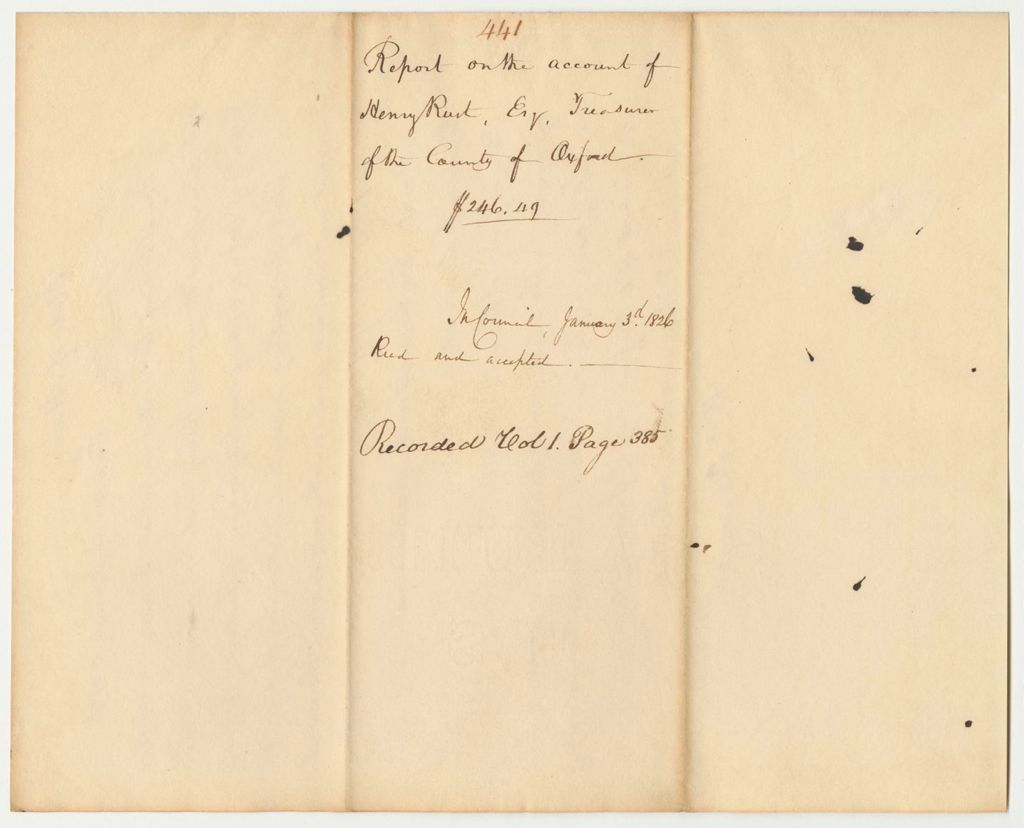 441
Report on the account of
Henry Rust, Esq, Treasurer
of the County of Oxford.
$246.49
In Council, January 3d. 1826
Read and accepted.
Recorded Vol 1. Page 385